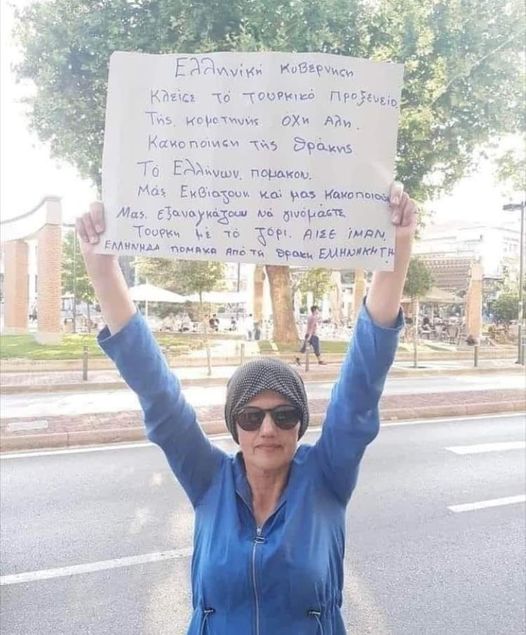 Ελληνική κυβερνηση
Κλείσε τό τουρκικό προξενείο
Της κομοτηνής όχη άλη.
Κακοποιηση της θράκης
Τό Ελλήνων. πομακον.
Μάς Εκβιαζουν και μας κακοποιούν
Μας. εξαναγκάζουν νά γινόμαστε
Τουρκη με τό ζόρι. ΑΙΣΕ ΙΜΑΝ,
ΕΛΛΗΝΗΔΑ ΠΟΜΑΚΑ ΑΠΟ ΤΗ ΘΡΑΚΗ ΕΛΗΝΗΚΗ ΓΗ